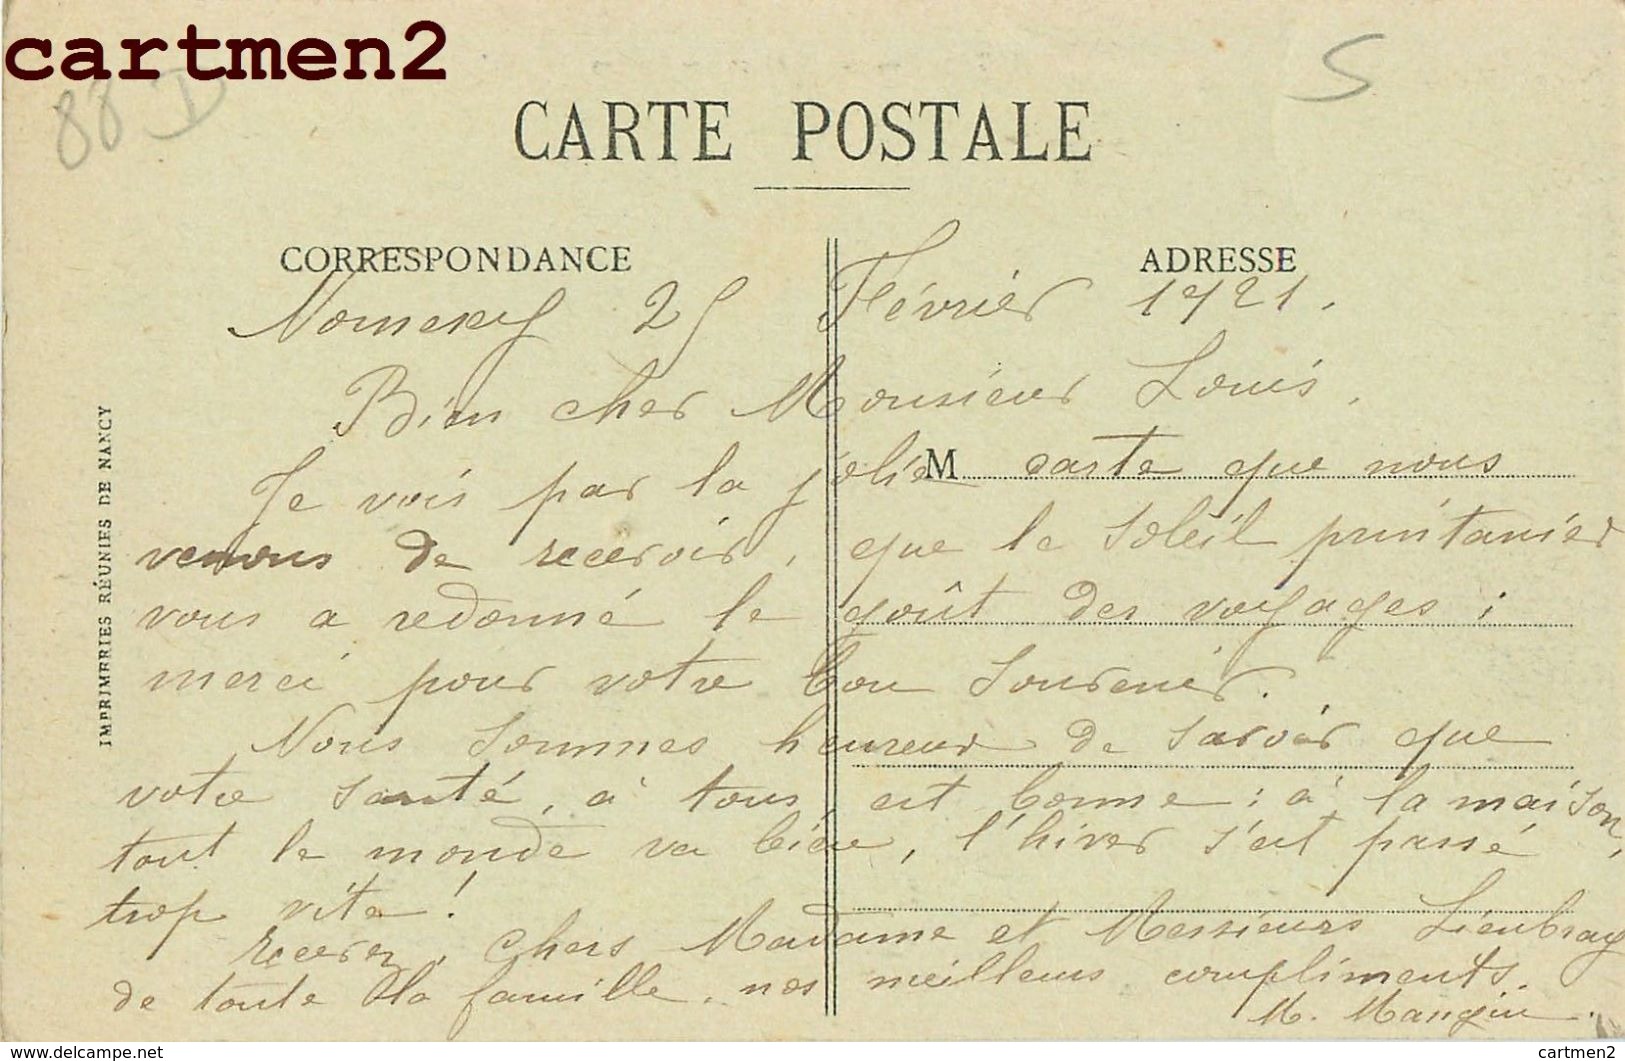 cartmen2
88 D
S
CARTE POSTALE
CORRESPONDANCE
ADRESSE
IMPRIMERIES RÉUNIES DE NANCY
Nomeny 25 Février 1921.
Bien cher Monsieur Louis,
M
Je vois par la jolie carte que nous
venons de recevoir, que le soleil printanier
vous a redonné le goût des voyages ;
merci pour votre bon souvenir.
Nous sommes heureux de savoir que
votre santé, à tous, est bonne ; à la maison,
tout le monde va bien, l'hiver s'est passé
trop vite !
Recevez, chers Madame et Messieurs
de toute la famille, nos meilleurs compliments.
M. Mangin.
delcampe.net
cartmen2